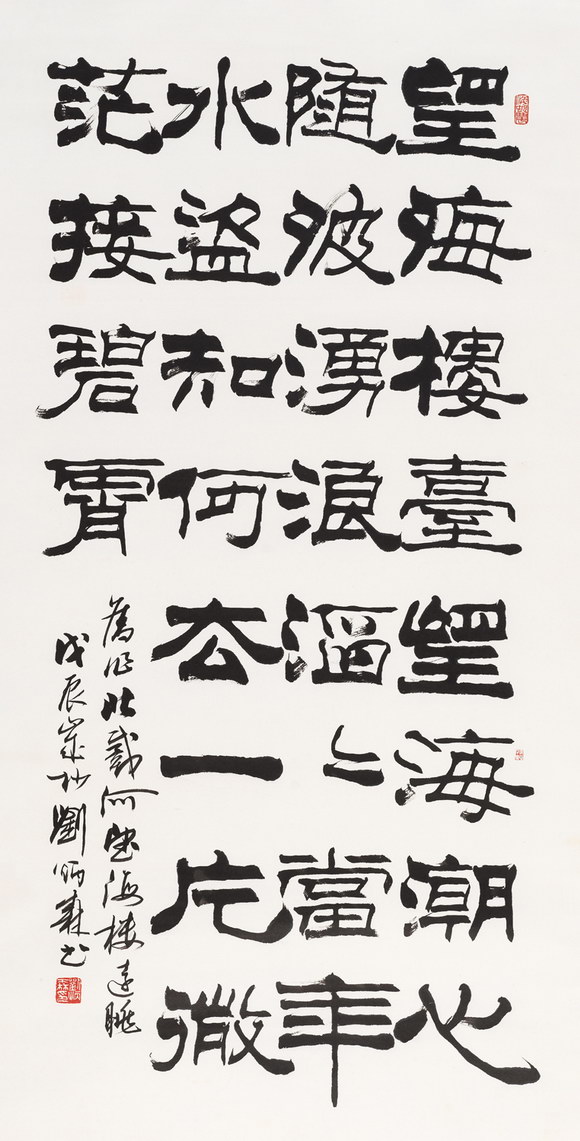 望海樓臺望海潮心
隨波湧浪滔々當年
水盜知何去一片微
茫接碧霄
舊作北戴河望海樓遠眺
戊辰歲杪劉炳森書